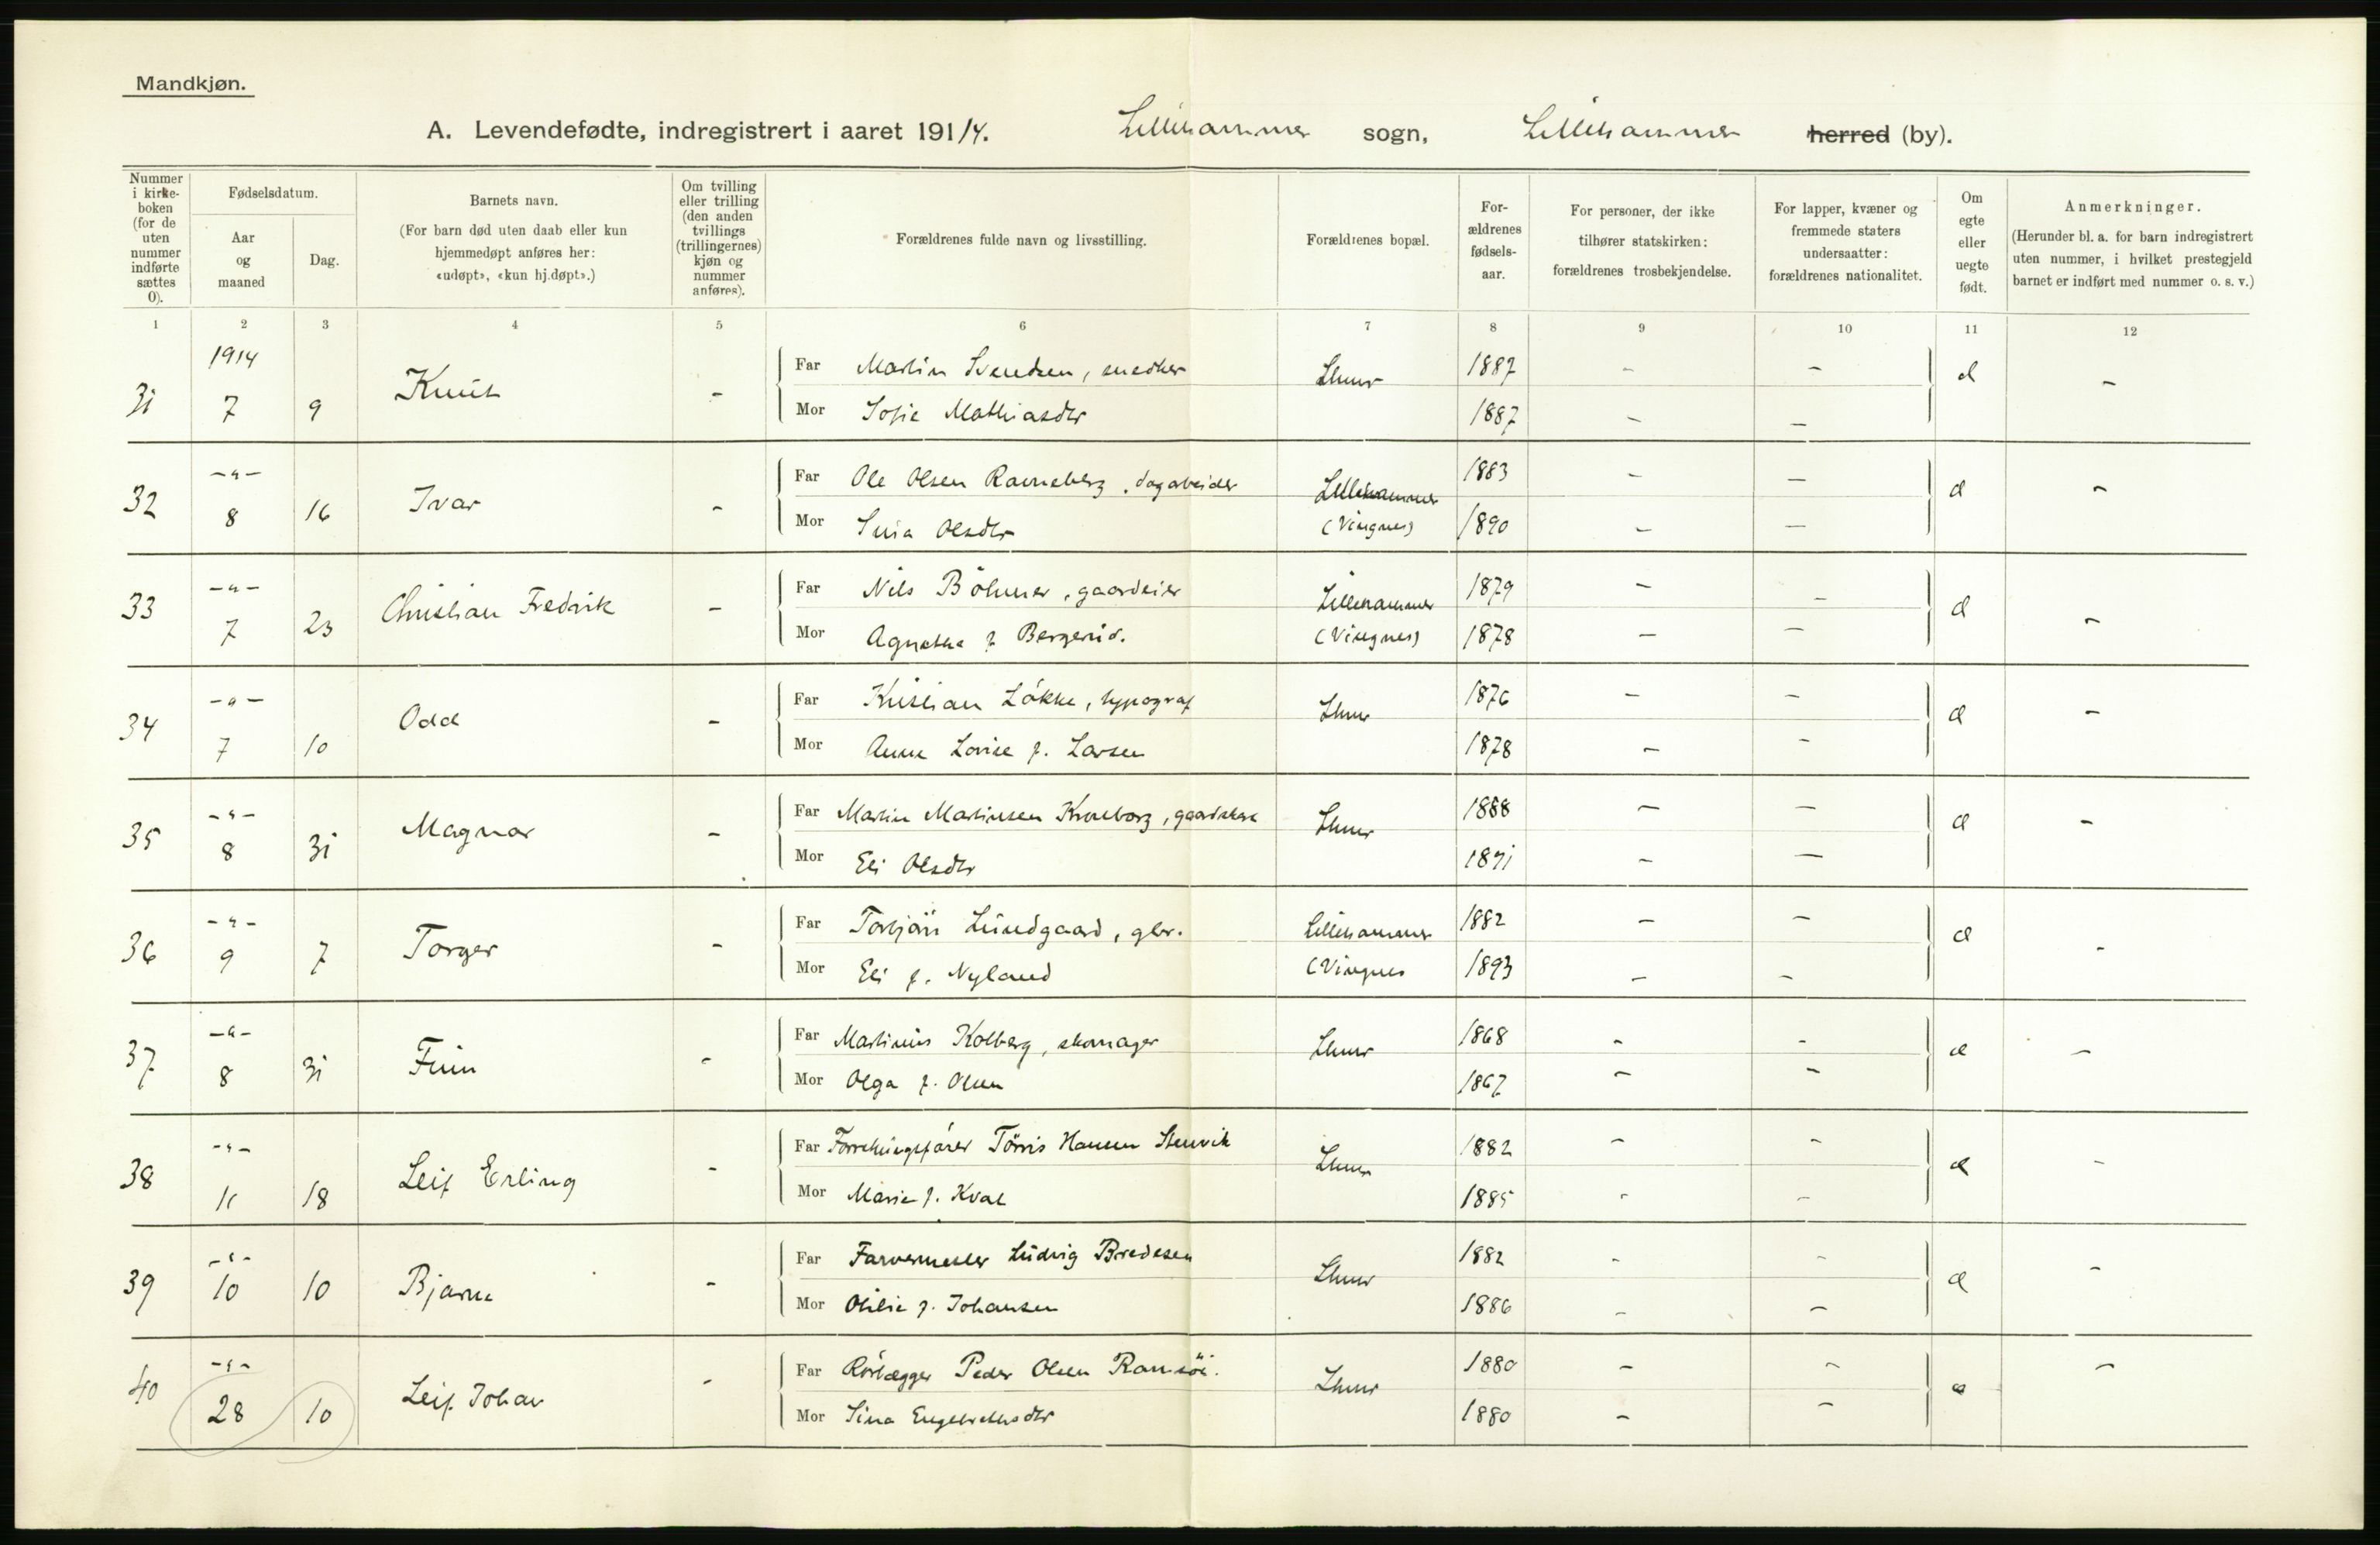 Mandkjøn.
A. Levendefødte, indregistrert i aaret 191/4. Lillehammer sogn, Lillehammer herred (by).
Nummer i kirke-boken (for de uten nummer indførte sættes 0).
Fødselsdatum.
Aar og maaned
Dag.
Barnets navn.
(For barn død uten daab eller kun hjemmedøpt anføres her: «udøpt», «kun hj.døpt».)
Om tvilling eller trilling (den anden tvillings (trillingernes) kjøn og nummer anføres).
Forældrenes fulde navn og livsstilling.
Forældrenes bopæl.
For-ældrenes fødsels-aar.
For personer, der ikke tilhører statskirken: forældrenes trosbekjendelse.
For lapper, kvæner og fremmede staters undersaatter: forældrenes nationalitet.
Om egte eller uegte født.
Anmerkninger.
(Herunder bl. a. for barn indregistrert uten nummer, i hvilket prestegjeld barnet er indført med nummer o. s. v.)
1 2 3 4 5 6 7 8 9 10 11 12
1914
31 7 9 Knut - Far Martin Svendsen, snedker Lhmr 1887 - - -
Mor Sofie Mathiasdtr 1887 - -
32 -"- 8 16 Ivar - Far Ole Olsen Ravneberg, dagarbeider Lillehammer 1883 - - -
Mor Olsdtr (Vingnes) 1890 - -
33 -"- 7 23 Christian Fredrik - Far Nils Böhmer, gaardeier Lillehammer 1879 - - -
Mor Agnethe f Bergerud. (Vingnes) 1878 - -
34 -"- 7 10 Odd - Far Kristian Løkke, typograf Lhmr 1876 - - -
Mor Anne Lovise f. Larsen 1878 - -
35 -"- 8 31 Magnar - Far Martin Martinsen Lhmr 1888 - - -
Mor Eli Olsdtr 1891 - -
36 -"- 9 7 Torger - Far Torbjørn Lundgaard, gbr. Lillehammer 1882 - - -
Mor Eli f. Nyland (Vingnes 1893 - -
37 -"- 8 31 Finn - Far Martinius Kolberg, skomager Lhmr 1868 - - -
Mor Olga f. Olsen 1867 - -
38 -"- 11 18 Leif Erling - Far Forretningsfører Tørris Hansen Stenvik Lhmr 1882 - - -
Mor Marie f. Kval 1885 - -
39 -"- 10 10 Bjarne - Far Farvermester Ludvig Bredesen Lhmr 1882 - - -
Mor Otilie f. Johansen 1886 - -
40 -"- 28 10 Leif Johan - Far Rørlægger Peder Olsen Ramsöi. Lhmr 1880 - - -
Mor Sina Engebrethsdtr 1880 - -